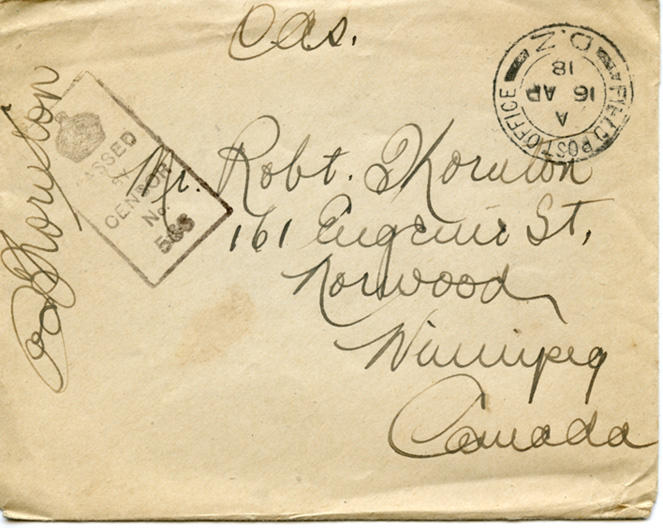 Oas.
FIELD POST OFFICE
A
16 AP
18
D.N.2
PASSED
CENSOR
No.
Mr. Robt. Thornton
161 Eugenie St,
Norwood
Winnipeg
Canada
Thornton